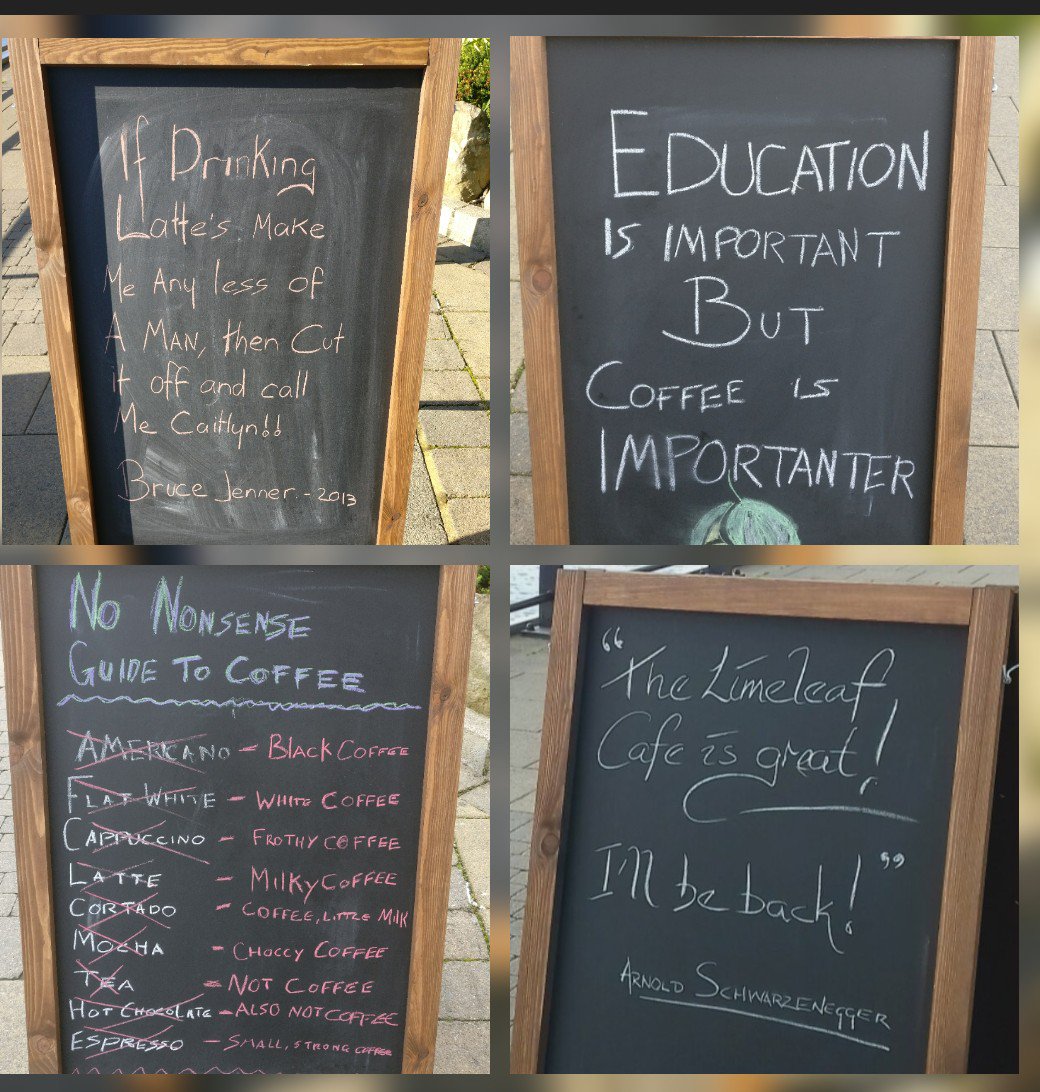 If Drinking
Latte's Make
Me Any less of
A Man, then Cut
it off and call
Me Caitlyn!!
Bruce Jenner - 2013
EDUCATION
IS IMPORTANT
BUT
COFFEE IS
IMPORTANTER
NO NONSENSE
GUIDE TO COFFEE
AMERICANO - BLACK COFFEE
FLAT WHITE - WHITE COFFEE
CAPPUCCINO - FROTHY COFFEE
LATTE - MILKY COFFEE
CORTADO - COFFEE, LITTLE MILK
MOCHA - CHOCCY COFFEE
TEA = NOT COFFEE
HOT CHOCOLATE - ALSO NOT COFFEE
ESPRESSO - SMALL, STRONG COFFEE
"The Limeleaf
Cafe is great!
I'll be back!"
ARNOLD SCHWARZENEGGER